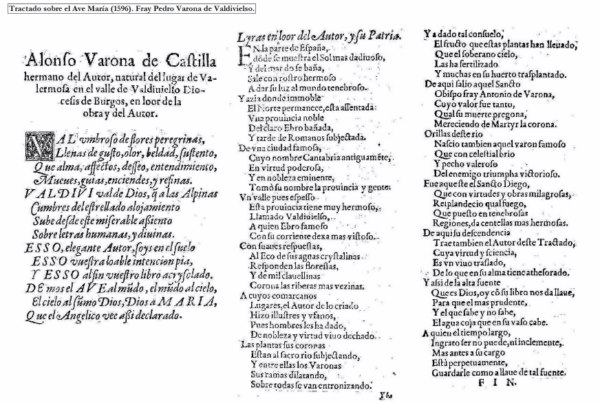 Tractado sobre el Ave María (1596). Fray Pedro Varona de Valdivielso.
Alonso Varona de Castilla
hermano del Autor, natural del lugar de Va-
lermosa en el valle de Valdiuielso Dio-
cesis de Burgos, en loor de la
obra y del Autor.
VAL vmbroso de flores peregrinas,
Llenas de gusto, olor, beldad, sustento,
Que alma, affectos, desseo, entendimiento,
Mueues, guias, enciendes, y refinas.
VALDIVI val de Dios, q̃ a las Alpinas
Cumbres del estrellado alojamiento
Sube desde este miserable asiento
Sobre letras humanas, y diuinas.
ESSO, elegante Autor, soys en el suelo
ESSO vuestra loable intencion pia,
Y ESSO al fin vuestro libro acrysolado.
DEmos el AVE al mũdo, el mũdo al cielo,
El cielo al sũmo Dios, Dios a MARIA,
Que el Angelico vee assi declarado.
Lyras en loor del Autor, y su Patria.
EN la parte de España,
dõde se muestra el Sol mas dadiuoso,
Y del mar do se baña,
Sale con rostro hermoso
A dar su luz al mundo tenebroso.
Yazia donde immoble
El Norte permanece, esta assentada
Vna prouincia noble
Del claro Ebro bañada,
Y tarde de Romanos subjectada.
De vna ciudad famosa,
Cuyo nombre Cantabria antiguamẽte,
En virtud poderosa,
Y en nobleza eminente,
Tomó su nombre la prouincia y gente.
Vn valle pues espesso
Esta prouincia tiene muy hermoso,
Llamado Valdiuielso,
A quien Ebro famoso
Con su corriente dexa mas vistoso.
Con suaues respuestas,
Al Eco de sus aguas crystalinas
Responden las florestas,
Y de mil clauellinas
Corona las riberas mas vezinas.
A cuyos comarcanos
Lugares, el Autor de lo criado
Hizo illustres y vfanos,
Pues hombres les ha dado,
De nobleza y virtud viuo dechado.
Las plantas sus coronas
Estan al sacro rio subjectando,
Y entre ellas los Varonas
Sus ramas dilatando,
Sobre todas se van entronizando.
Y ha
Y a dado tal consuelo,
El fructo que estas plantas han lleuado,
Que el soberano cielo,
Las ha fertilizado
Y muchas en su huerto trasplantado.
De aqui salio aquel Sancto
Obispo fray Antonio de Varona,
Cuyo valor fue tanto,
Qual su muerte pregona,
Mereciendo de Martyr la corona.
Orillas deste rio
Nascio tambien aquel varon famoso
Que con celestial brio
Y pecho valeroso
Del enemigo triumpha victorioso.
Fue aqueste el Sancto Diego,
Que con virtudes y obras milagrosas,
Resplandecio qual fuego,
Que puesto en tenebrosas
Regiones, da centellas mas hermosas.
De aquí su descendencia
Trae tambien el Autor deste Tractado,
Cuya virtud y sciencia,
Es vn viuo traslado,
De lo que en su alma tiene athesorado.
Y assi de la alta fuente
Que es Dios, oy cõ su libro nos da llaue,
Para que el mas prudente,
Y el que sabe y no sabe,
El agua coja que en su vaso cabe.
A quien el tiempo largo,
Ingrato ser no puede, ni inclemente,
Mas antes a su cargo
Está perpetuamente,
Guardarle como a llaue de tal fuente.
FIN.